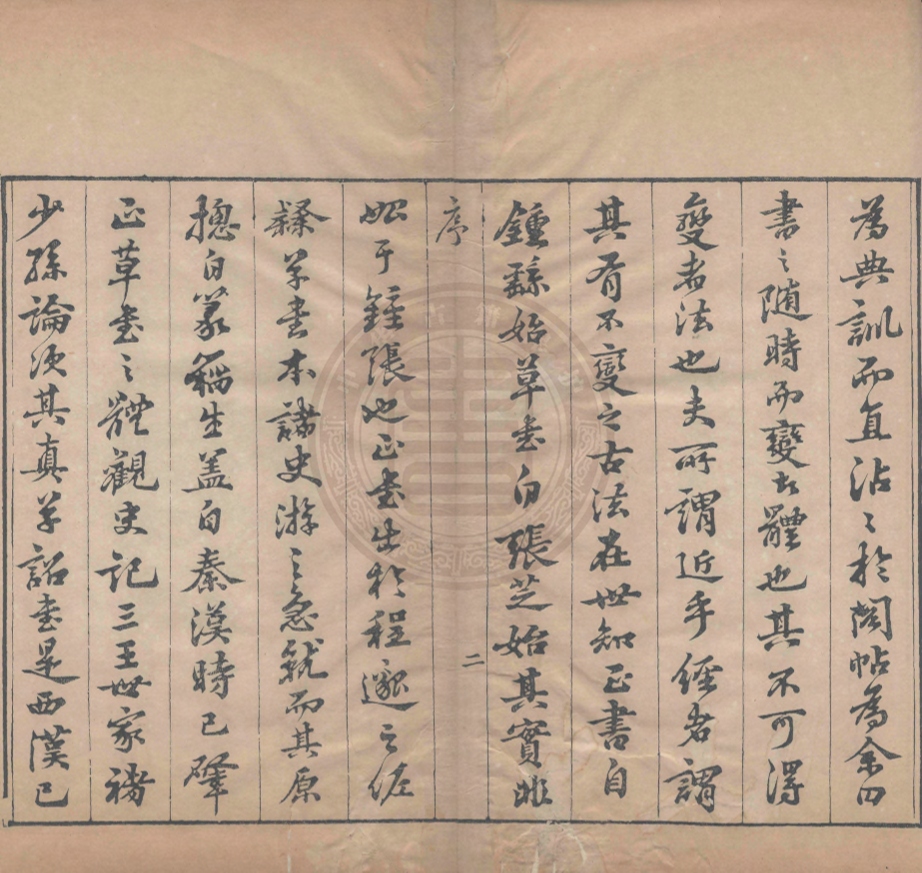 為典訓而直沾〻於閣帖為余曰
書〻隨時而變者體也其不可得
變者法也夫所謂近乎經者謂
其有不變之古法在世知正書自
鍾繇始草書自張芝始其實非
序
二
始于鍾張也正書出於程邈之
隸草書本諸史游之急就而其原
揔自篆籀生蓋自秦漢時已肇
正草書之體觀史記三王世家褚
少孫論次其真草詔書是西漢已